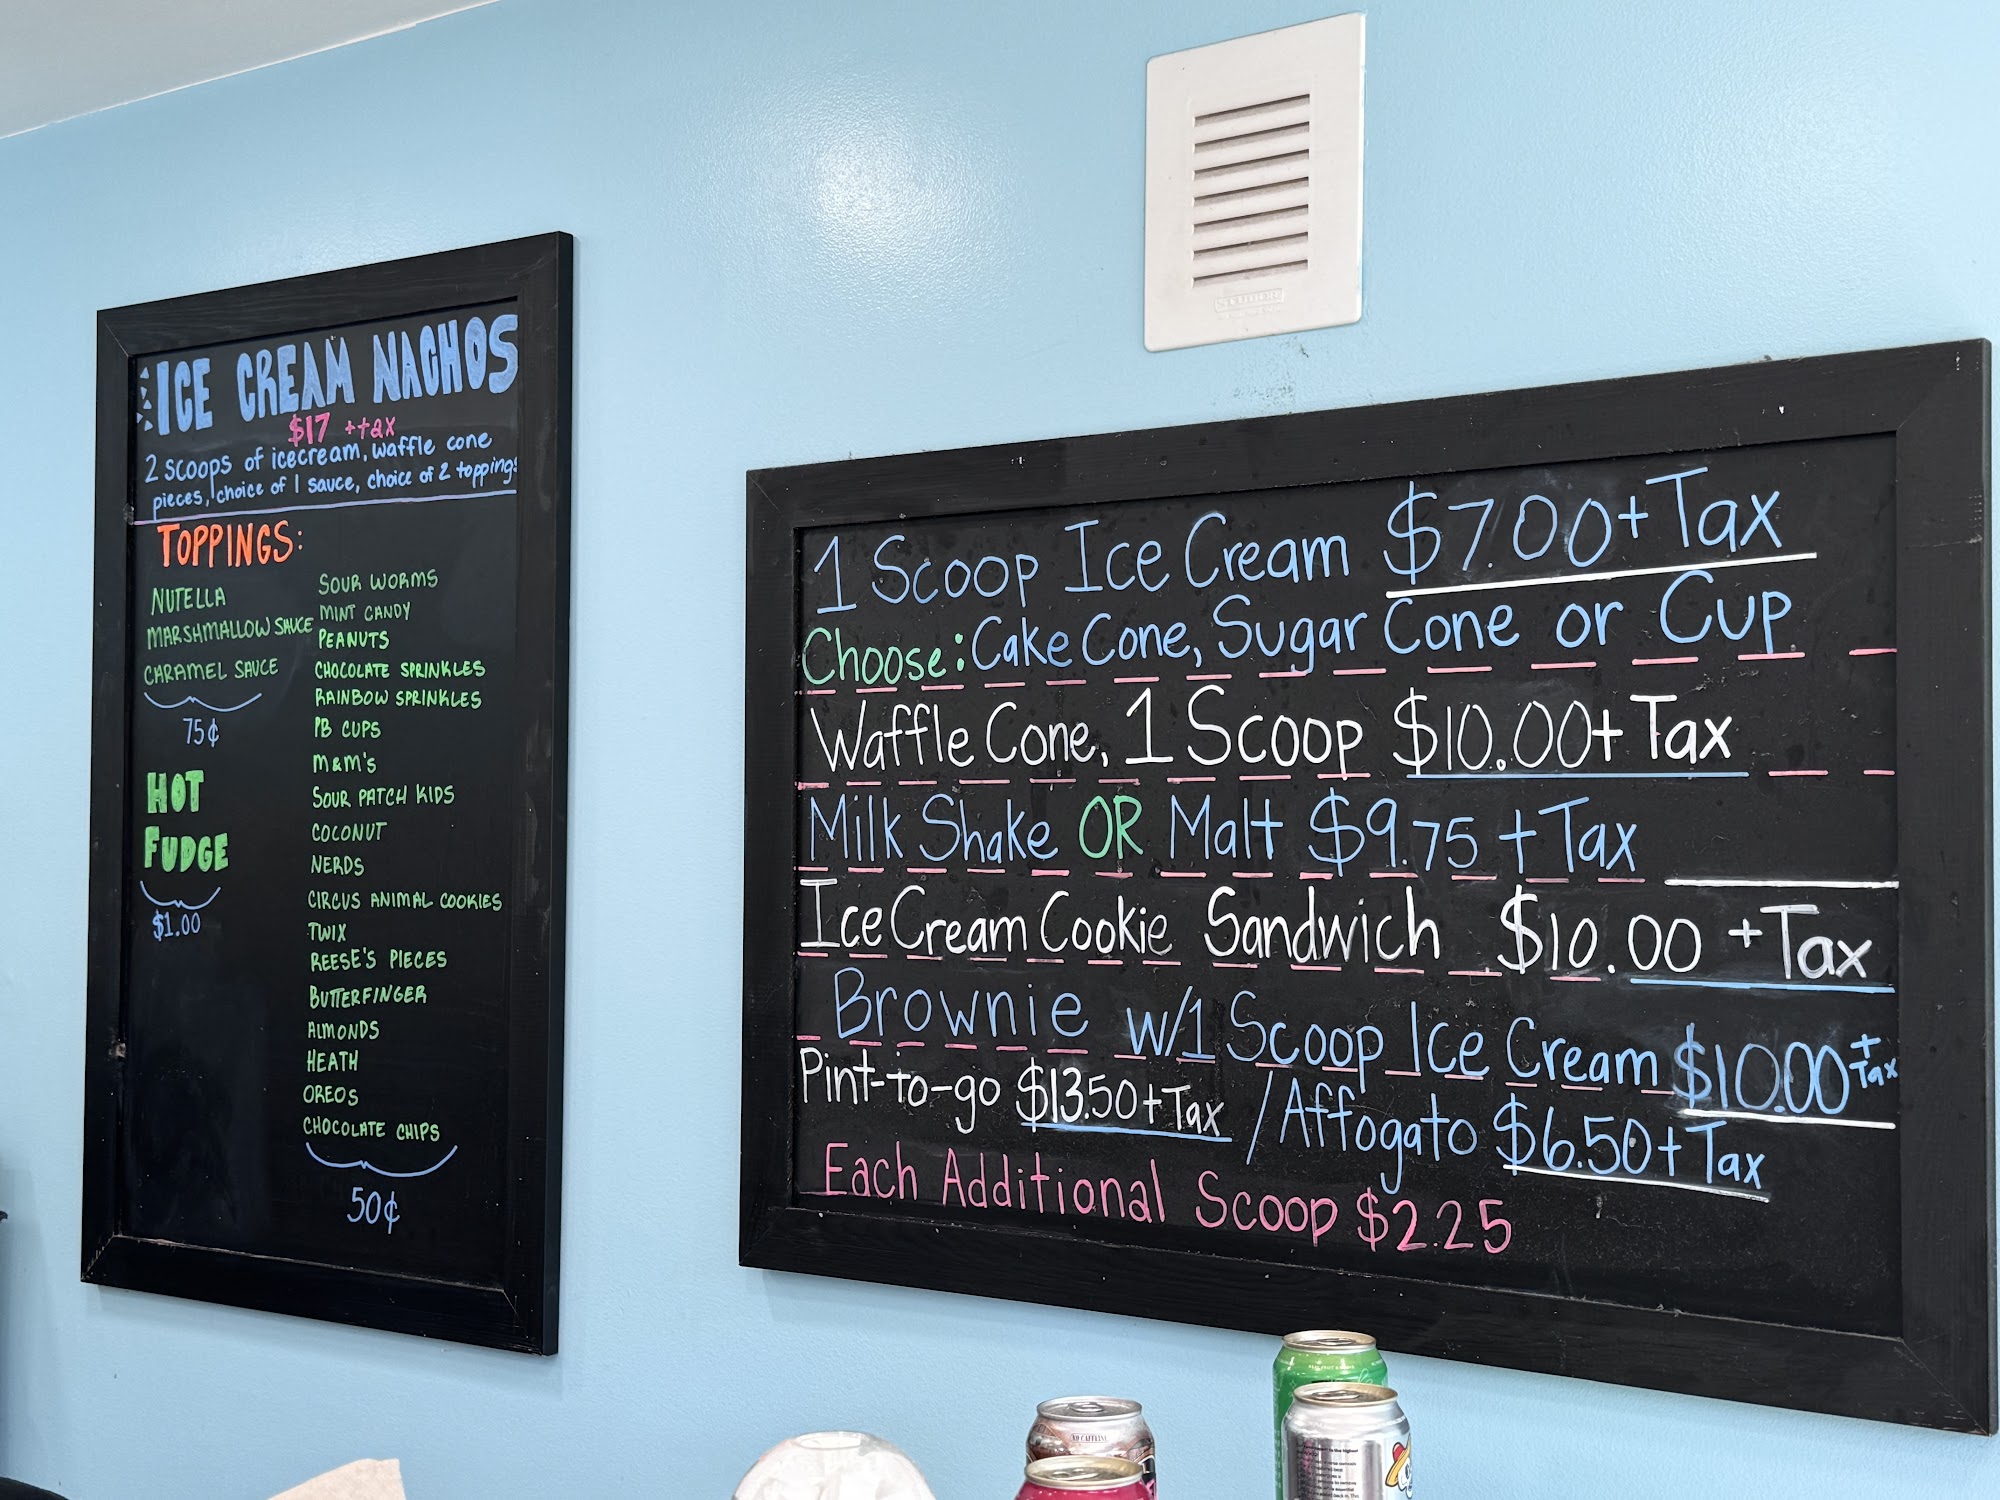 ICE CREAM NACHOS
$17 +tax
2 scoops of icecream, waffle cone
pieces, choice of 1 sauce, choice of 2 toppings
TOPPINGS:
NUTELLA
MARSHMALLOW SAUCE
CARAMEL SAUCE
75¢
HOT
FUDGE
$1.00
SOUR WORMS
MINT CANDY
PEANUTS
CHOCOLATE SPRINKLES
RAINBOW SPRINKLES
PB CUPS
M&M'S
SOUR PATCH KIDS
COCONUT
NERDS
CIRCUS ANIMAL COOKIES
TWIX
REESE'S PIECES
BUTTERFINGER
ALMONDS
HEATH
OREOS
CHOCOLATE CHIPS
50¢
1 Scoop Ice Cream $7.00+Tax
Choose: Cake Cone, Sugar Cone or Cup
Waffle Cone, 1 Scoop $10.00+Tax
Milk Shake OR Malt $9.75 + Tax
Ice Cream Cookie Sandwich $10.00 +Tax
Brownie w/1 Scoop Ice Cream $10.00 + Tax
Pint-to-go $13.50+Tax / Affogato $6.50+Tax
Each Additional Scoop $2.25
NO CAFFEINE